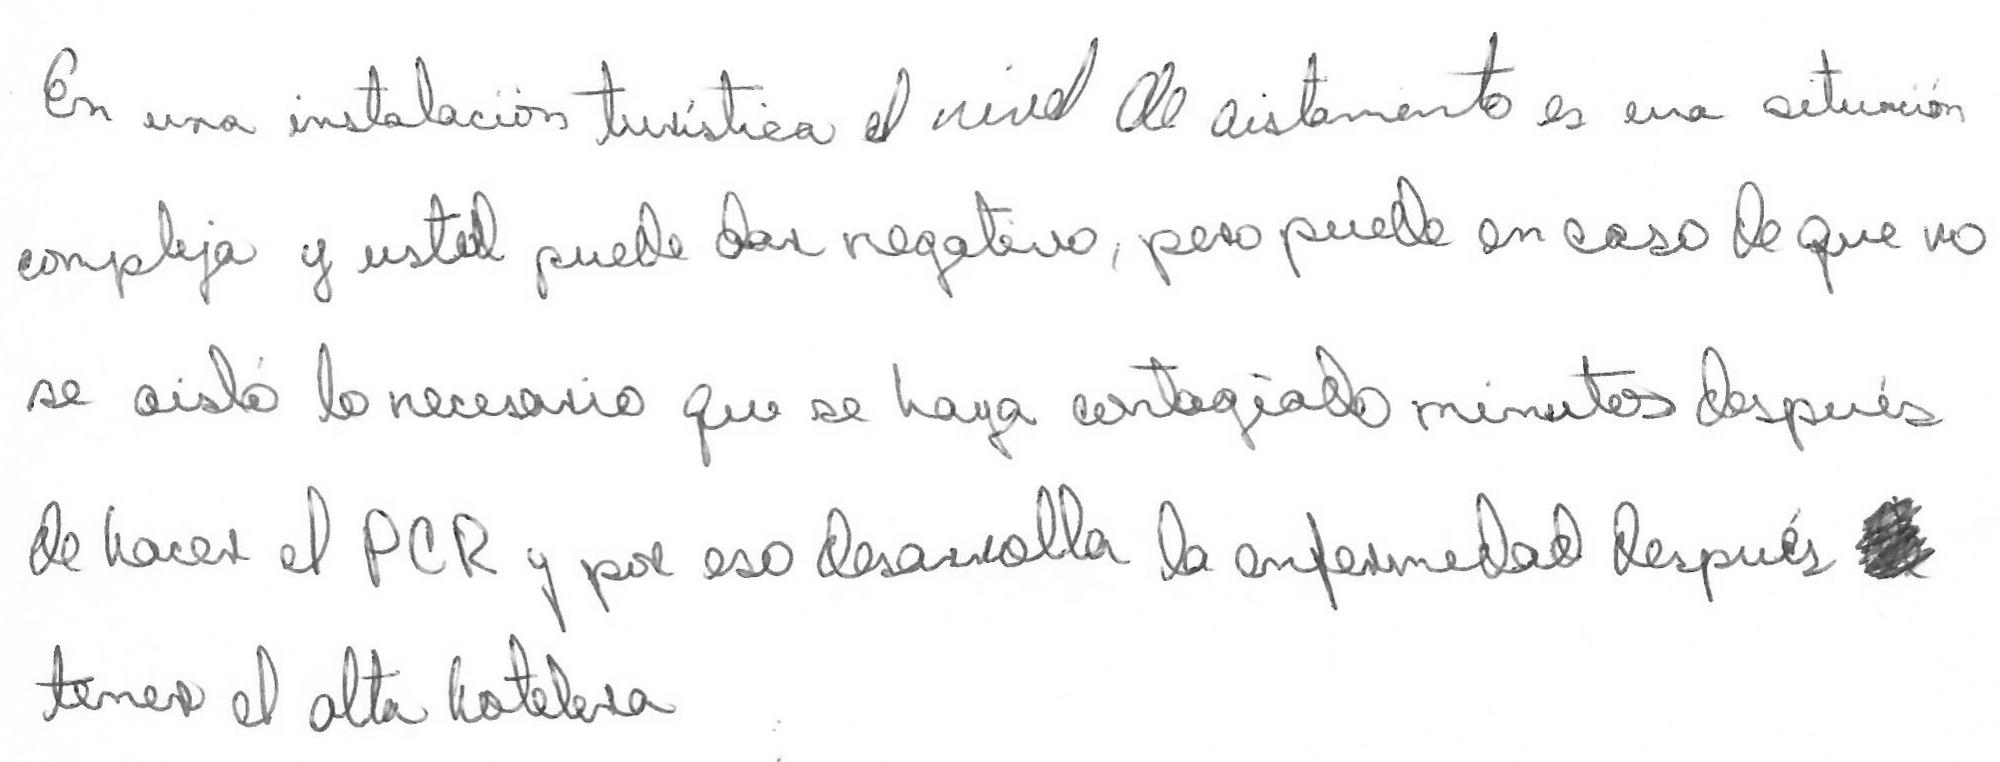 En una instalación turística el nivel de aislamiento es una situación
compleja y usted puede dar negativo, pero puede en caso de que no
se aisló lo necesario que se haya contagiado minutos después
de hacer el PCR y por eso desarrolla la enfermedad después
tener el alta hotelera